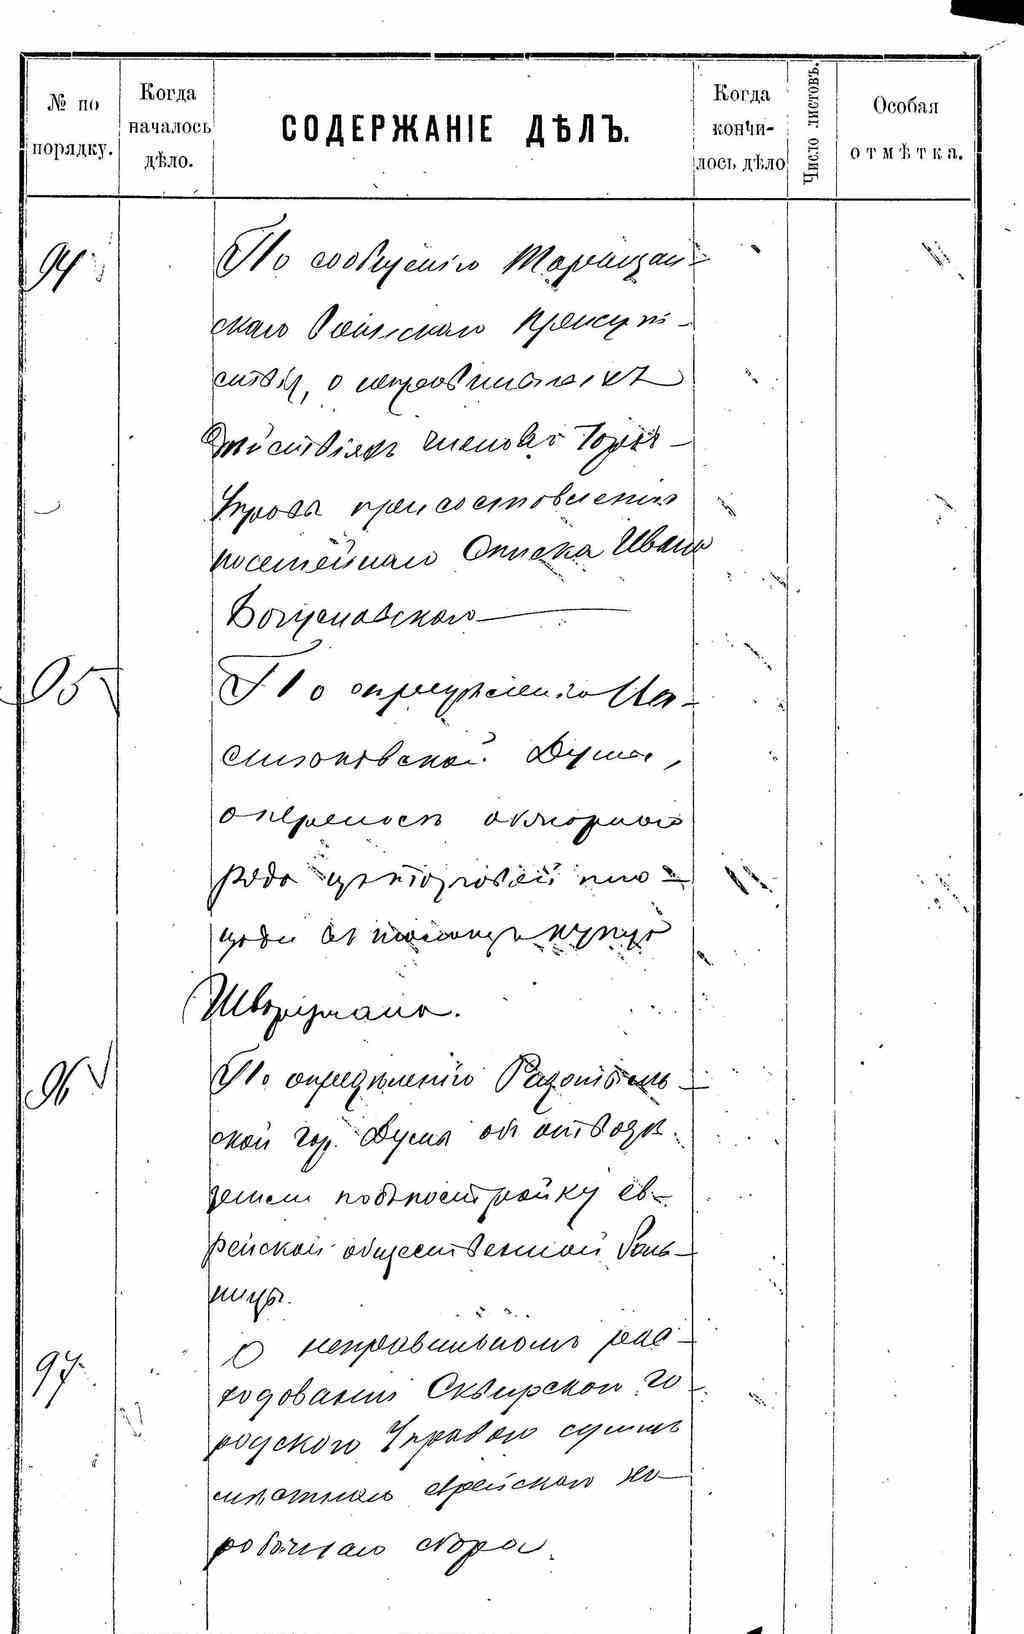 № по порядку.
Когда началось дѣло.
СОДЕРЖАНІЕ ДѢЛЪ.
Когда кончилось дѣло
Число листовъ.
Особая отмѣтка.
94
По сообщенію Таращан-
скаго Воинскаго Присут-
ствія, о неправильныхъ
дѣйствіяхъ членовъ Город.
Управы при составленіи
посемейнаго Списка Ивана
Богуславскаго
95
По опредѣленію
Думы,
о переносѣ обжорнаго
ряда торговой пло-
щади
Шварцмана.
96
По опредѣленію Радомысль-
ской гор. Думы объ отводѣ
земли подъ постройку ев-
рейской общественной боль-
ницы.
97
О неправильномъ рас-
ходованіи Сквирской го-
родского Управою суммъ
мѣстнаго еврейскаго ко-
робочнаго сбора.